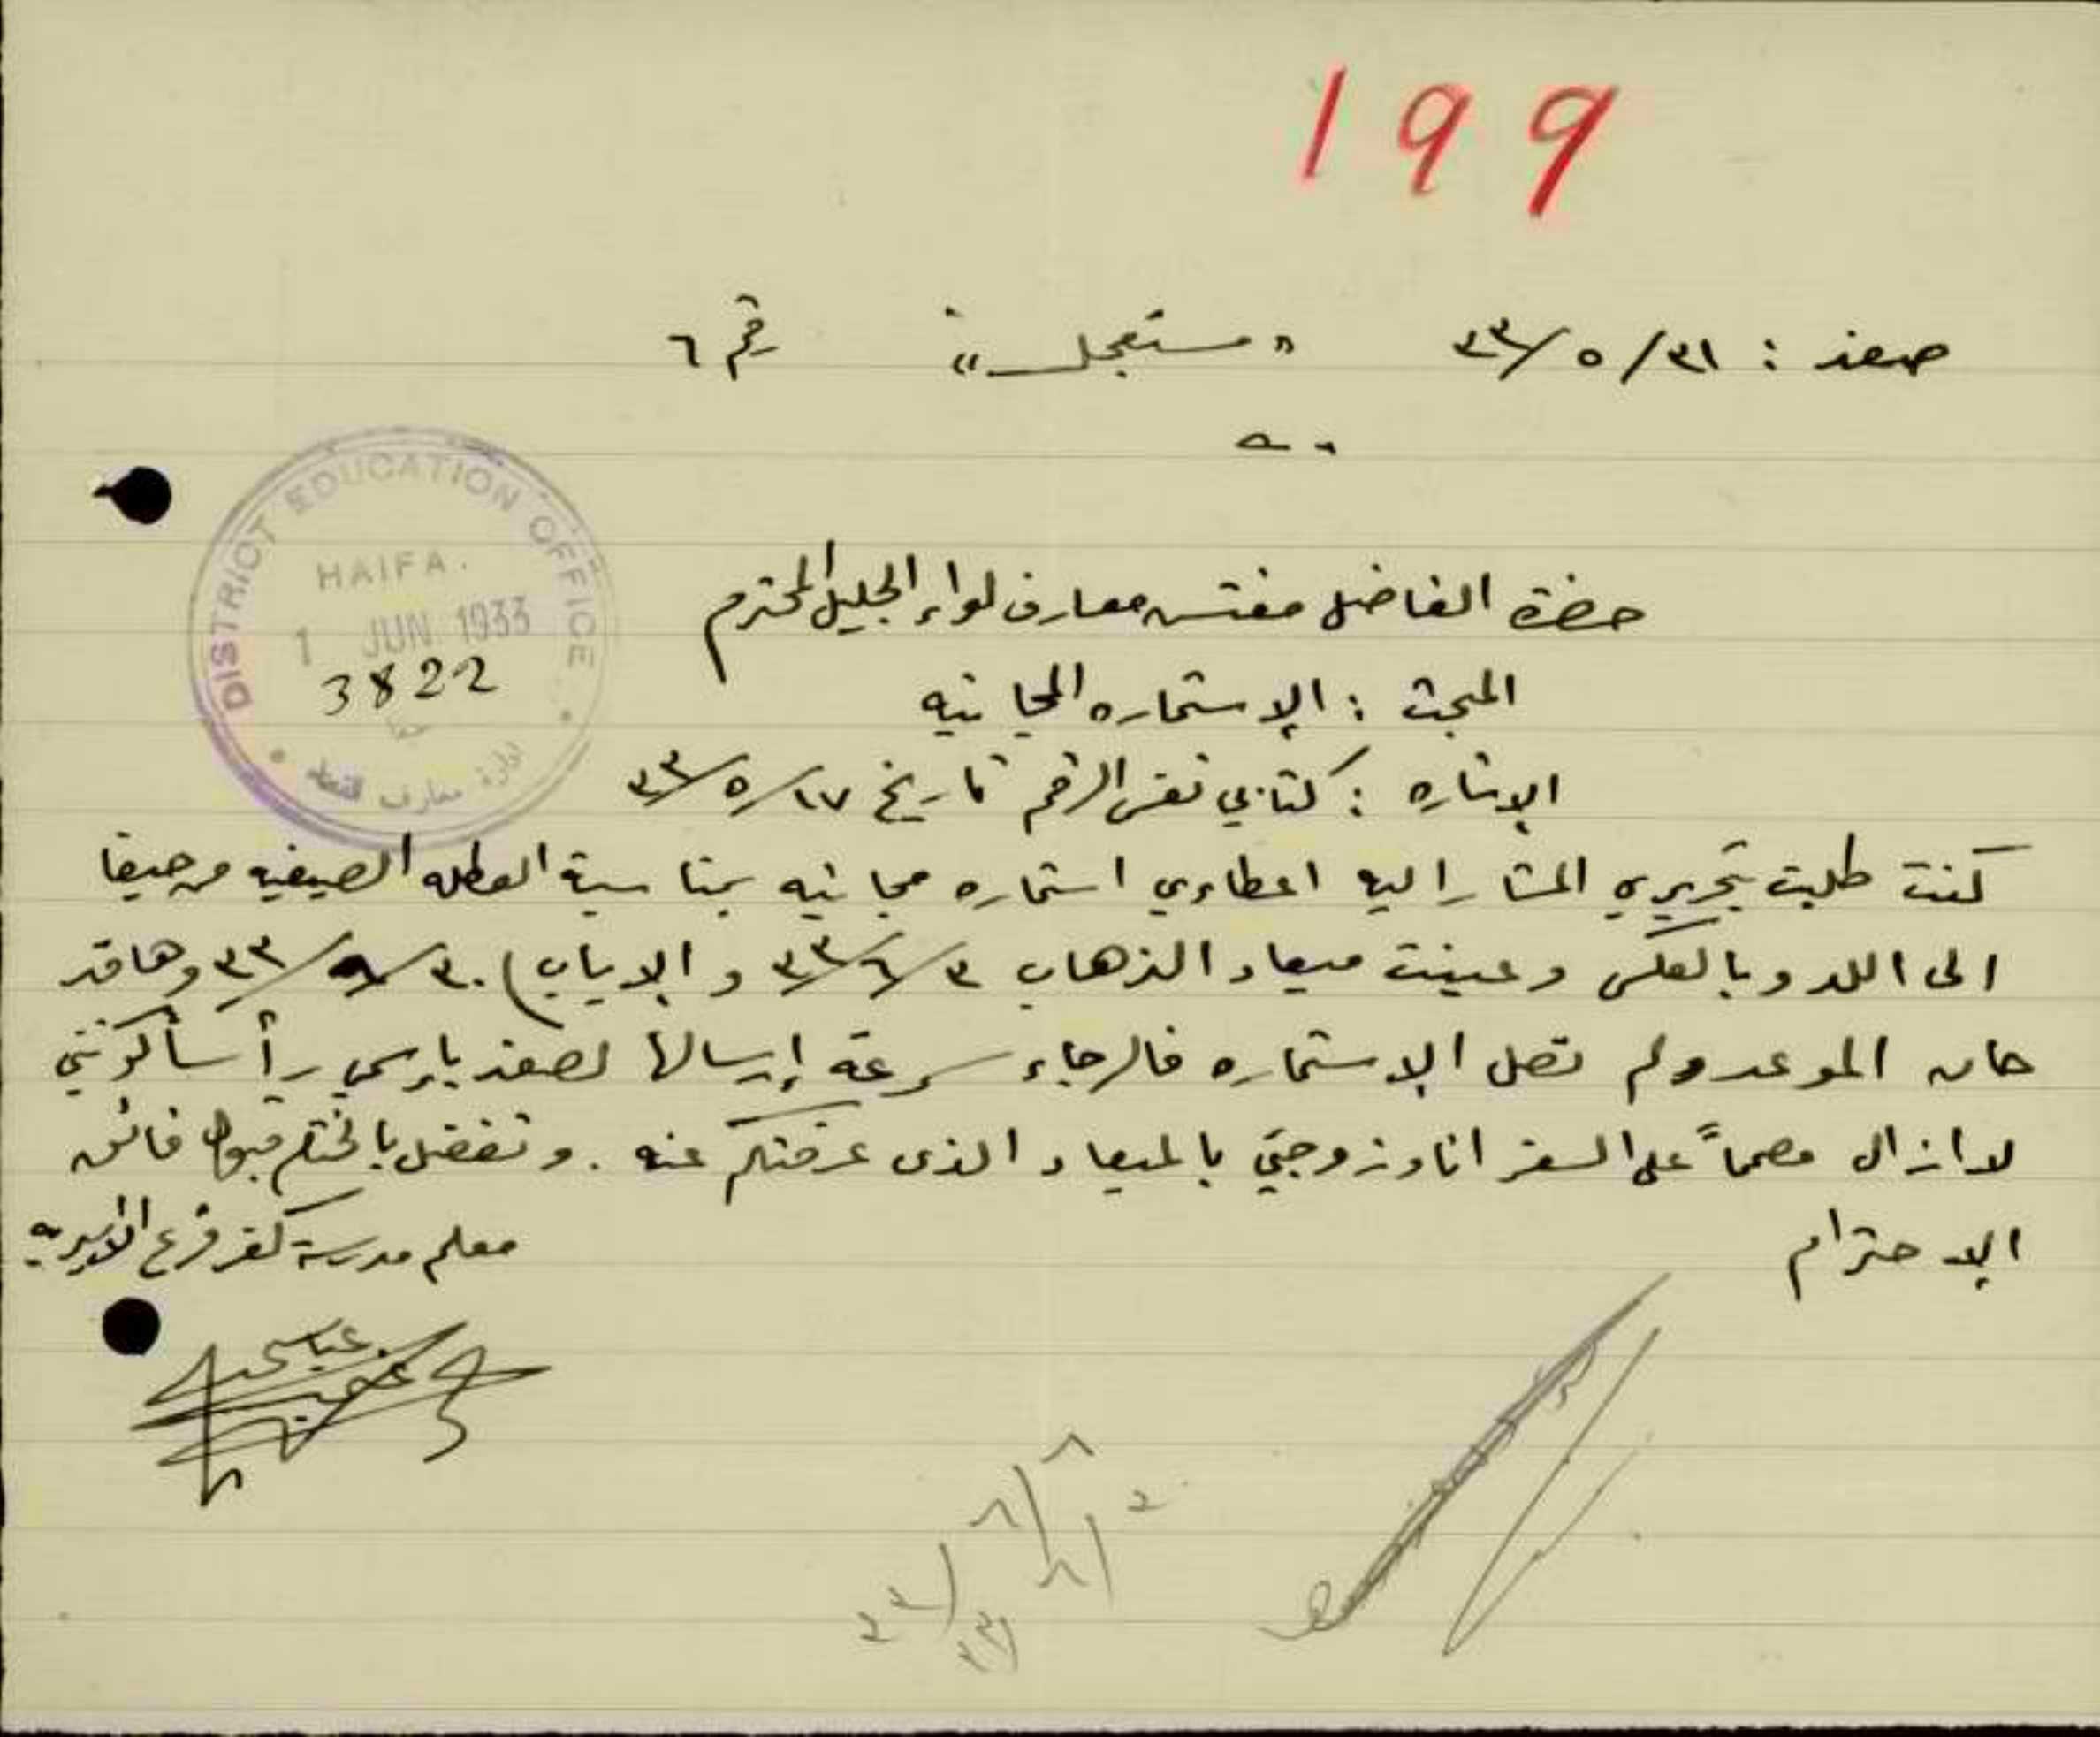 199
صفد : ٣١/٥/٣٣ "مستعجل" رقم ٦
DISTRICT EDUCATION OFFICE
HAIFA.
1 JUN 1933
3822
ادارة معارف
حضرة الفاضل مفتش معارف لواء الجليل المحترم
المبحث : الاستماره المجانيه
الاشاره : كتابي نفس الرقم تاريخ ١٧/٥/٣٣
كنت طلبت بتحريري المشار اليه اعطاءي استماره مجانيه بمناسبة العطله الصيفيه من حيفا
الى اللد وبالعكس وعينت ميعاد الذهاب ٣/٦/٣٣ و الاياب ٣٠/ /٣٣ وها قد
حان الموعد ولم تصل الاستماره فالرجاء سرعة إرسالها لصفد باسمي رأساً لكونني
لا ازال مصمماً على السفر انا وزوجتي بالميعاد الذى عرفتكم عنه . وتفضل بالختام قبول فائق
الاحترام
معلم مدرسة كفر الاميريه
عباس